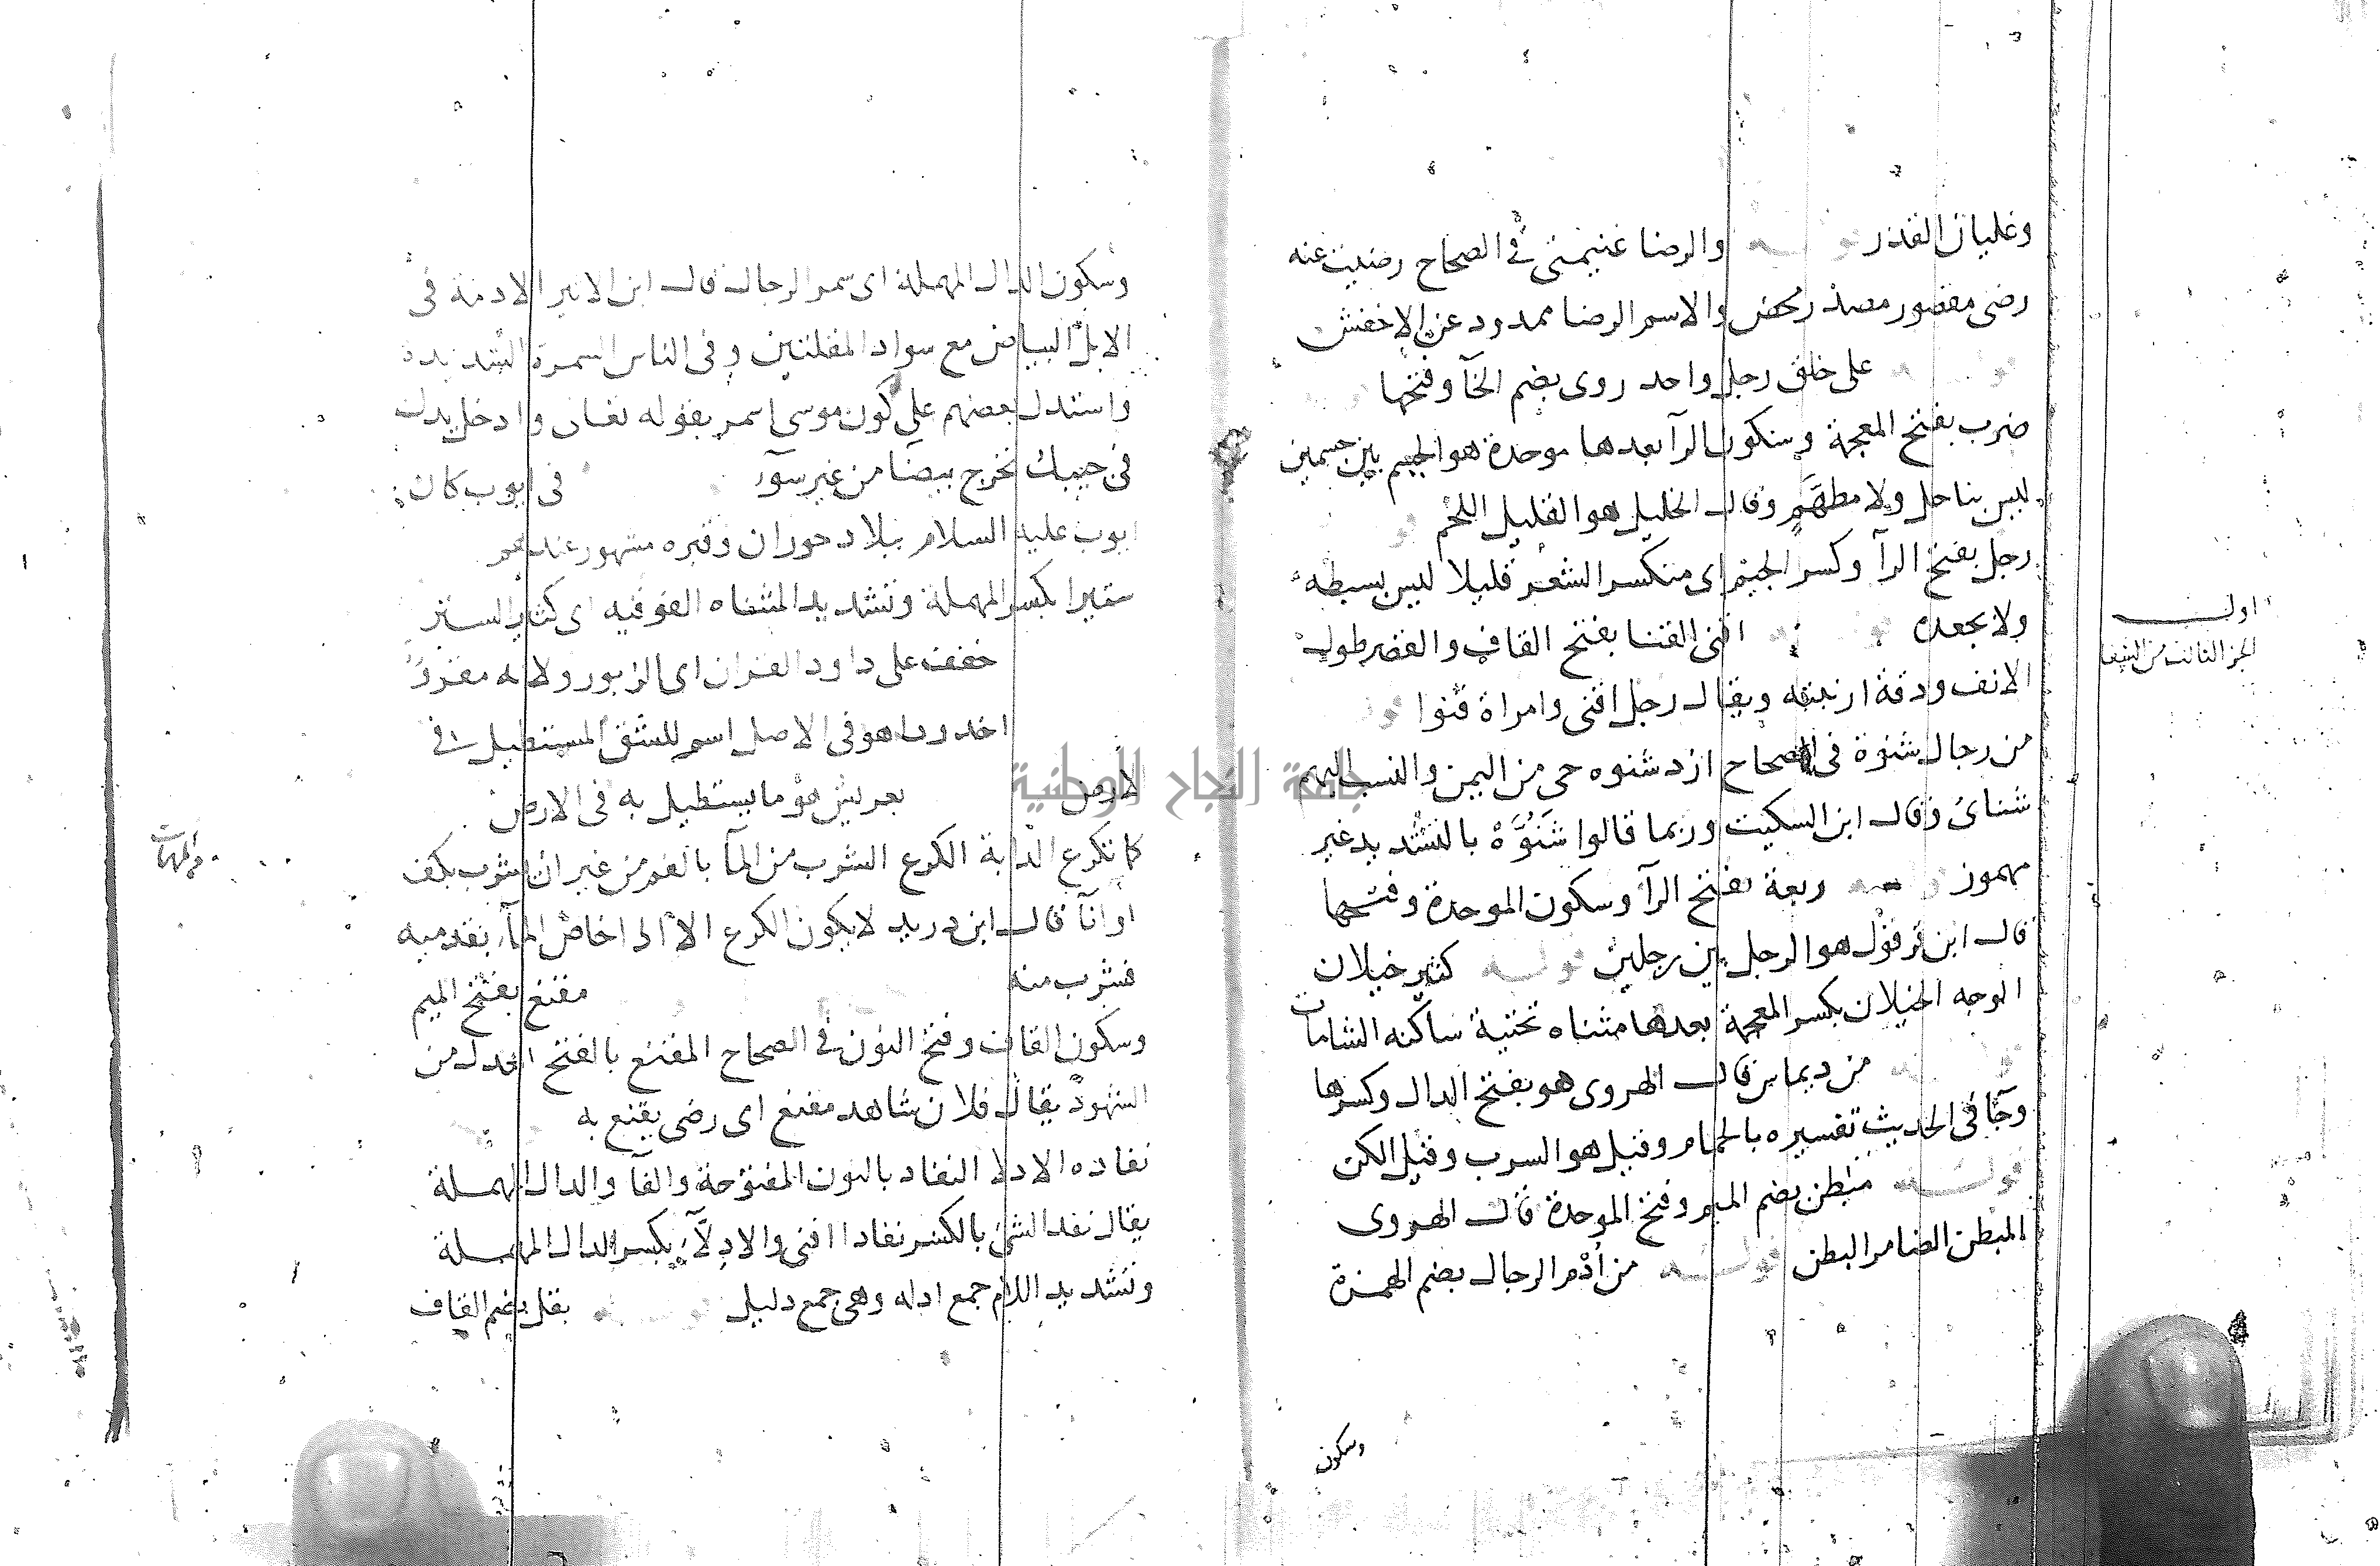 وغليان القدر قوله والرضا غنيمتى فى الصحاح رضيت عنه
رضى مقصور مصدر محض والاسم الرضا ممدود عن الاخفش
قوله على خلق رجل واحد روى بضم الخآ وفتحها
ضرب بفتح المعجمة وسكون الرآ بعدها موحدة هو الجسم بين جسمين
ليس بناحل ولا مطهَّم وقال الخليل هو القليل اللحم
رجل بفتح الرآ وكسر الجيم اى منكسر الشعر قليلا ليس بسبطه
ولا بجعده قوله اقنى القنا بفتح القاف والقصر طول
الانف ودقة ارنبته ويقال رجل اقنى وامراة قنوا
من رجال شنوة فى الصحاح ازد شنوه حى من اليمن والنسب اليهم
شنائ وقال ابن السكيت وربما قالوا شَنُوَّة بالتشديد غير
مهموز قوله ربعة بفتح الرآ وسكون الموحدة وفتحها
قال ابن قرقول هو الرجل بين رجلين قوله كثير خيلان
الوجه الخيلان بكسر المعجمة بعدها مثناه تحتية ساكنه الشامات
قوله من ديماس قال الهروى هو بفتح الدال وكسرها
وجآ فى الحديث تفسيره بالحمام وقيل هو السرب وقيل الكن
قوله مبطن بضم الميم وفتح الموحدة قال الهروى
المبطن الضامر البطن قوله من اُدْم الرجال بضم الهمزة
وسكون
اول
الجز الثالث من الشفا
وسكون الدال المهملة اى سمر الرجال قال ابن الاثير الادمة فى
الابل البياض مع سواد المقلتين وفى الناس السمرة الشديدة
واستدل بعضهم على كون موسى اسمر بقوله تعالى وادخل يدك
فى جيبك تخرج بيضا من غير سوء فى ايوب كان
ايوب عليه السلام ببلاد حوران وقبره مشهور عندهم
ستيرا بكسر المهملة وتشديد المثناه الفوقيه اى كثير الستر
خفف على داود القران اى الزبور ولانه مقرو
اخدودا هو فى الاصل اسم للشق المستطيل فى
الارض بعريش هو ما يستظل به فى الارض
كما تكرع الدابة الكرع الشرب من المآ بالفم من غير ان يشرب بكف
او انآ قال ابن دريد لا يكون الكرع الا اذا خاض المآ بقدميه
فشرب منه مقنع بفتح الميم
وسكون القاف وفتح النون فى الصحاح المقنع بالفتح العدل من
الشهود يقال فلان شاهد مقنع اى رضى يقنع به
نفاده الادلا النفاد بالنون المفتوحة والفآ والدال المهملة
يقال نفد الشئ بالكسر نفادا افنى والادلآء بكسر الدال المهملة
وتشديد اللام جمع ادله وهى جمع دليل قوله بقل بضم القاف
جامعة النجاح الوطنية